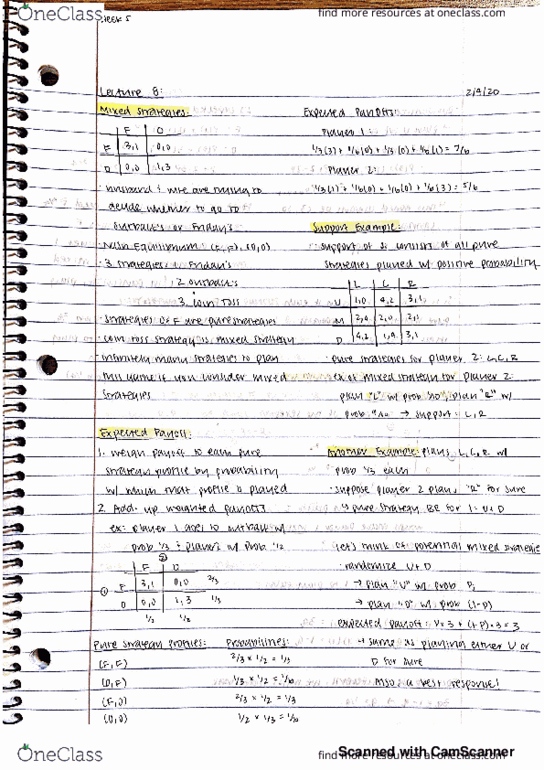 OneClass
find more resources at oneclass.com
Week 5
Lecture 8:
2/9/20
Mixed Strategies:
F O
F 3,1 0,0
O 0,0 1,3
· husband & wife are trying to
decide whether to go to
outback's or Friday's
· Nash Equilibrium (F,F), (O,O)
· 3 strategies: 1. Friday's
2. outback's
3. coin toss
· strategies O & F are pure strategies
· coin toss strategy is mixed strategy
· infinitely many strategies to play
this game if you consider mixed
strategies
Expected Payoff:
1. weigh payoff to each pure
strategy profile by probability
w/ which that profile is played
2. Add up weighted payoffs
ex: player 1 goes to outback w/
prob 1/3 + player 2 w/ prob 1/2
②
F O
① F 3,1 0,0 2/3
O 0,0 1,3 1/3
1/2 1/2
Pure Strategy Profiles: Probabilities:
(F,F) 2/3 x 1/2 = 1/3
(O,F) 1/3 x 1/2 = 1/6
(F,O) 2/3 x 1/2 = 1/3
(O,O) 1/2 x 1/3 = 1/6
Expected Payoffs:
Player 1:
1/3(3) + 1/6(0) + 1/3(0) + 1/6(1) = 7/6
Player 2:
1/3(1) + 1/6(0) + 1/6(0) + 1/6(3) = 5/6
Support Example:
· support of si consists of all pure
strategies played w/ positive probability
L C R
U 1,0 4,2 3,1
M 2,0 2,1
D 4,2 1,0 3,1
· pure strategies for player 2: L, C, R
· ex of mixed strategy for player 2:
play "L" w/ prob play "R" w/
prob → support = L, R
· Another Example: plays L, C, R w/
prob 1/3 each
· suppose player 2 plays "R" for sure
↳ pure strategy BR for 1: U + D
let's think of potential mixed strategies
· randomize U + D
→ play "U" w/ prob P
→ play "D" w/ prob (1-P)
expected payoff = P·3 + (1-P)·3 = 3
→ same as playing either U or
D for sure
Also a best response!
Scanned with CamScanner
OneClass
find more resources at oneclass.com